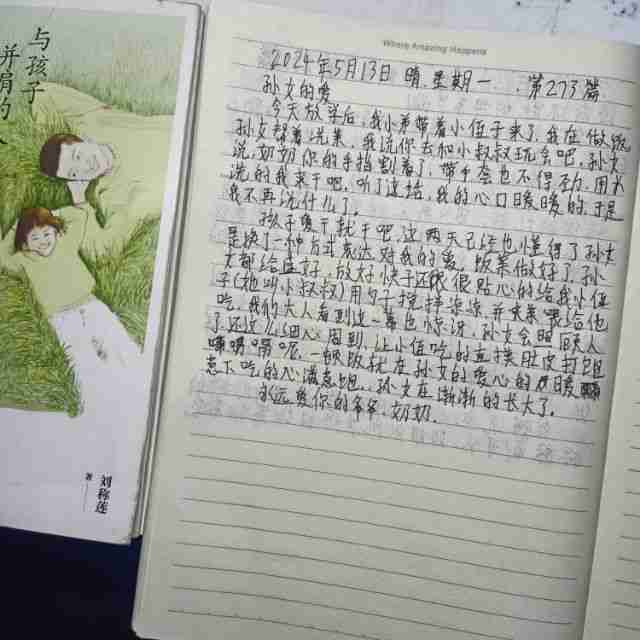 与孩子
并肩的
刘称莲
著
Where Amazing Happens
2024年5月13日 晴 星期一 第273篇
孙女的爱
今天放学后,我小弟带着小侄子来了,我在做饭
孙女帮着洗菜,我说你去和小叔叔玩会吧,孙女
说奶奶你的手指割着了,带手套也不得劲,用水
洗的我来干吧,听了这话,我的心口暖暖的,于是
我不再说什么了。
孩子要干就干吧,这两天已经也懂得了孙女
是换了一种方式表达对我的爱,饭菜做好了,孙
女都给盛好,放好筷子还很贴心的给我小侄
子(她叫小叔叔)用勺子搅拌凉凉,并夹菜喂给他
吃,我们大人看到这一幕也惊讶,孙女会照顾人
了还这么细心周到,让小侄吃的直接肚皮都跑
一顿饭就在孙女的爱心的
下吃的心满意足,孙女在渐渐的长大了。
永远爱你的爷爷、奶奶.